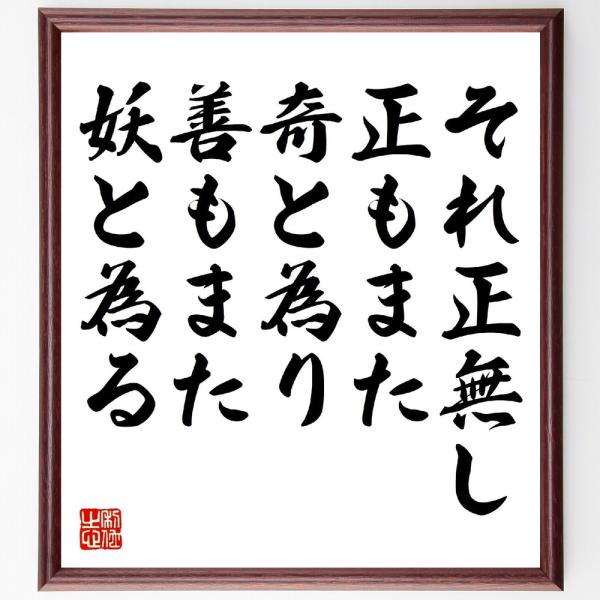 それ正無し
正もまた
奇と為り
善もまた
妖と為る